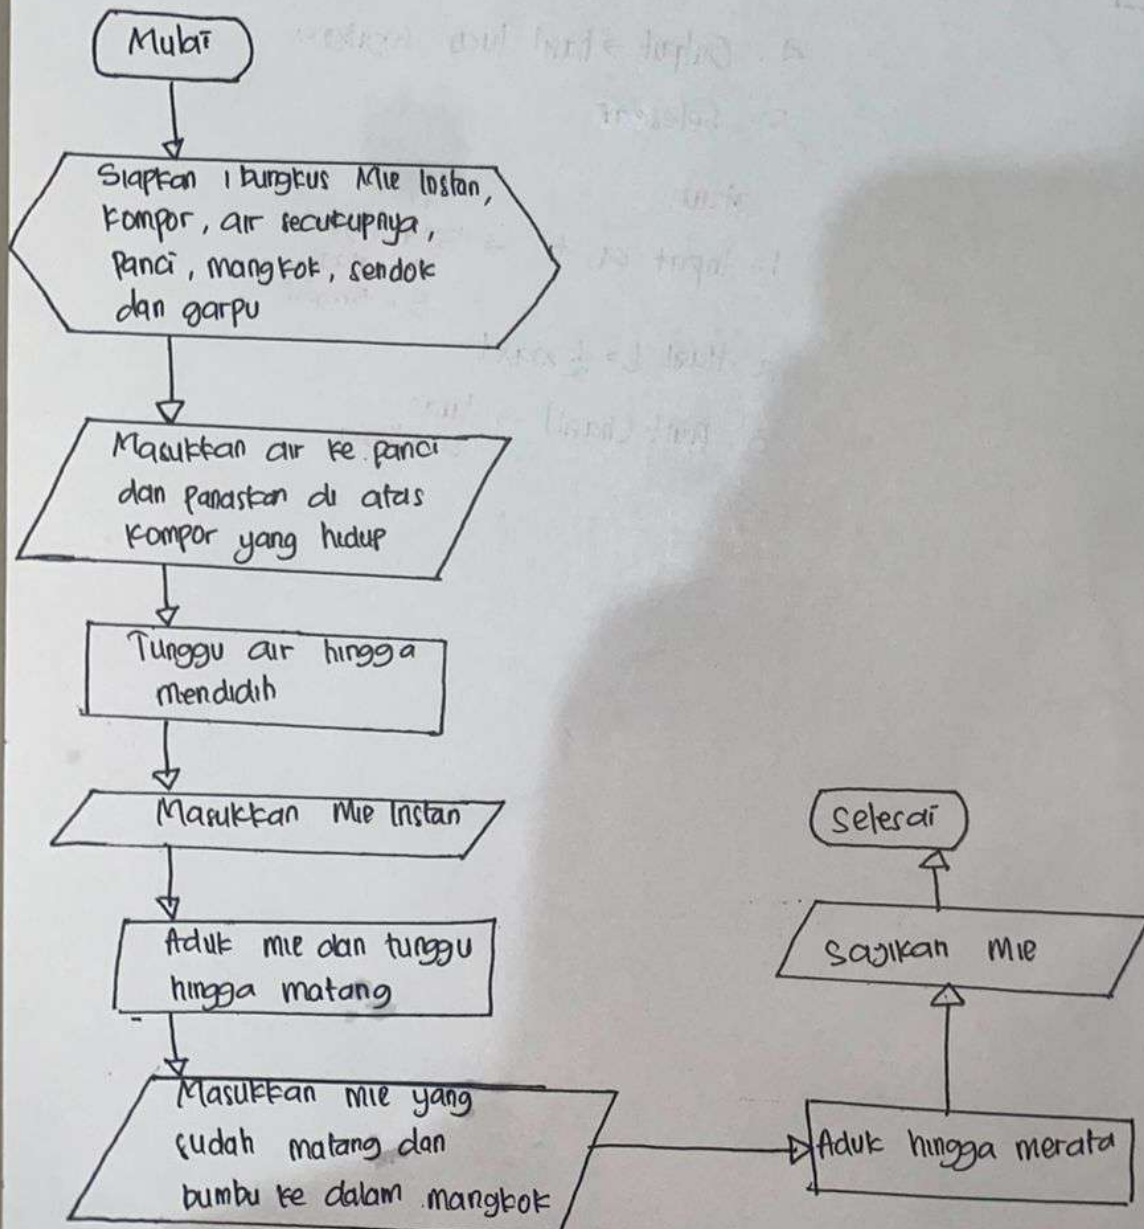 Mulai
Siapkan 1 bungkus Mie Instan,
Kompor, air secukupnya,
Panci, mangkok, sendok
dan garpu
Masukkan air ke panci
dan Panaskan di atas
Kompor yang hidup
Tunggu air hingga
mendidih
Masukkan Mie Instan
Aduk mie dan tunggu
hingga matang
Masukkan mie yang
sudah matang dan
bumbu ke dalam mangkok
Aduk hingga merata
Sajikan Mie
Selesai